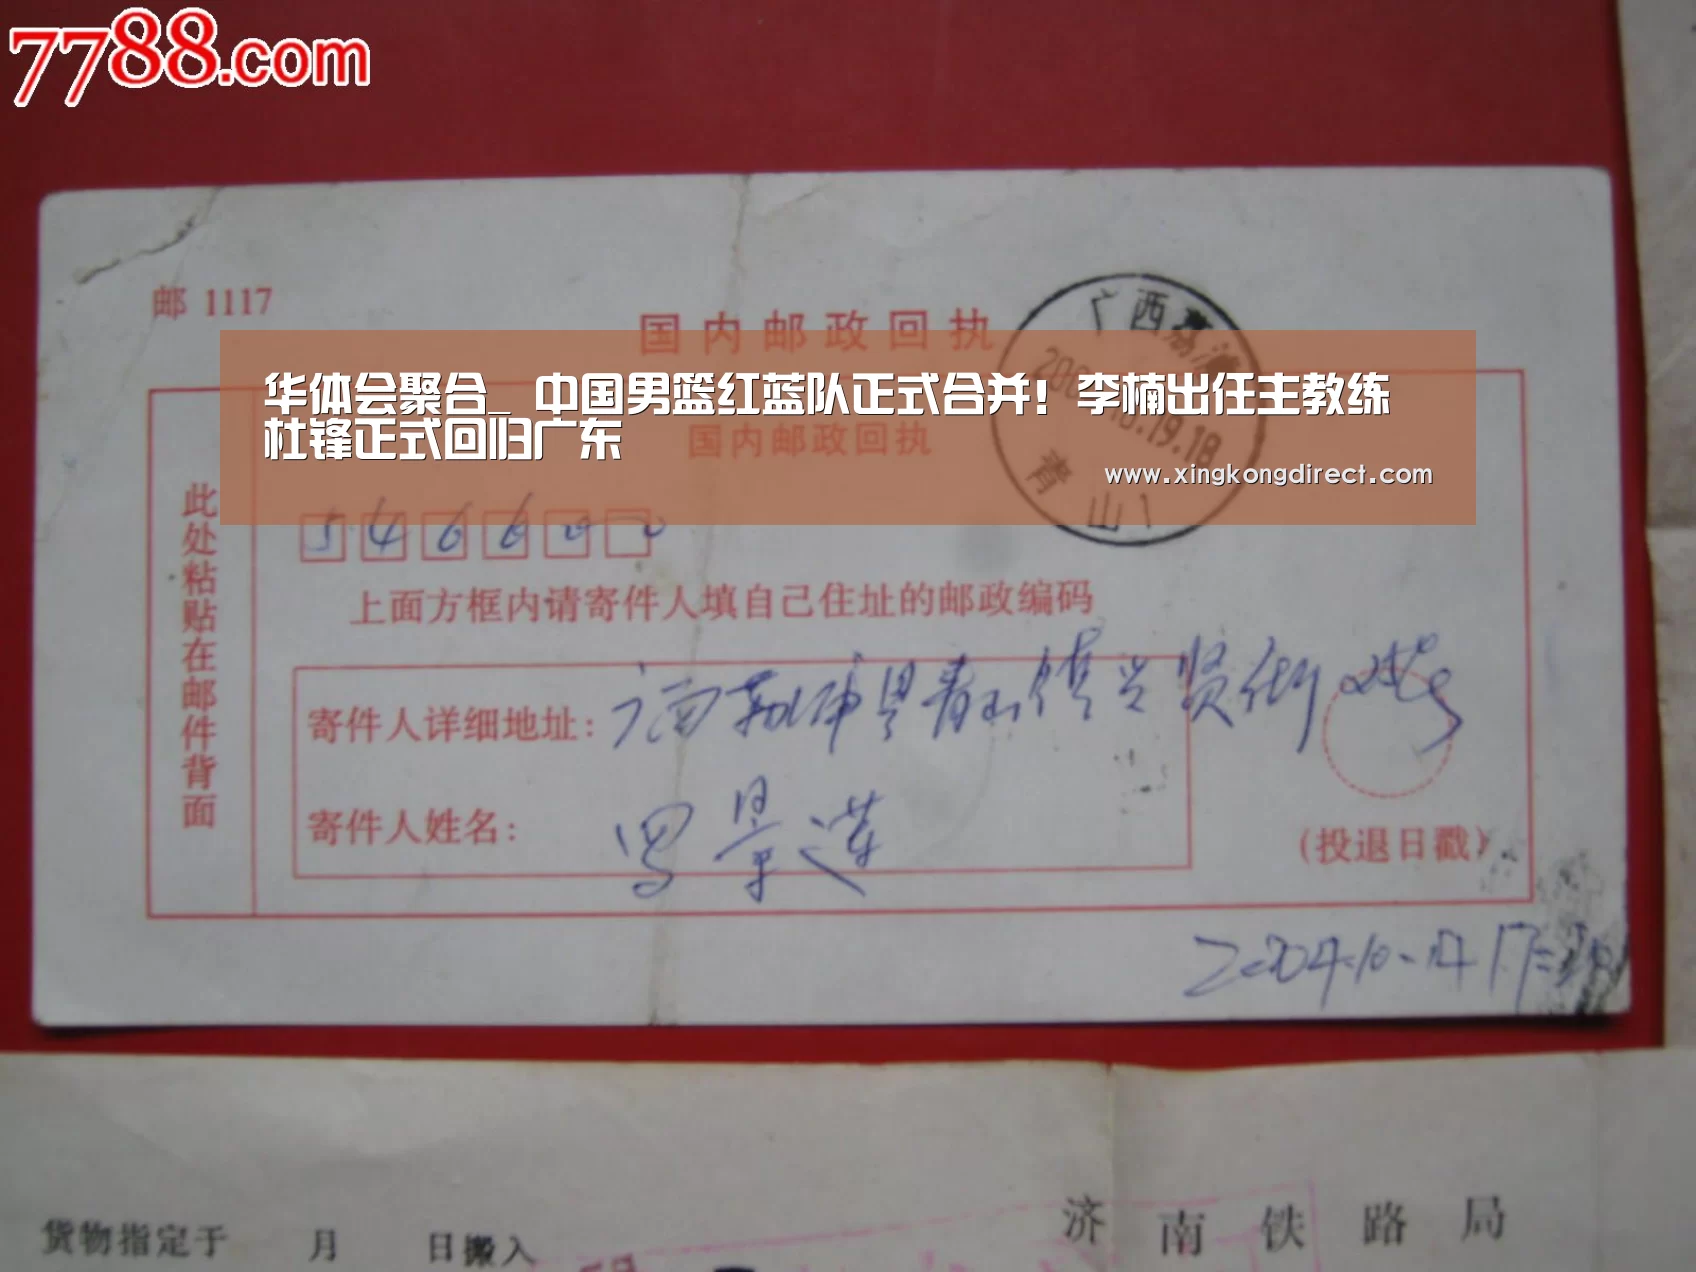 7788.com
邮 1117
国内邮政回执
华体会聚合_ 中国男篮红蓝队正式合并！李楠出任主教练
杜锋正式回归广东
国内邮政回执
www.xingkongdirect.com
广西荔浦
19.18
青山1
此处粘贴在邮件背面
546600
上面方框内请寄件人填自己住址的邮政编码
寄件人详细地址：广西荔浦县青山镇兴贤街
寄件人姓名：
（投退日戳）
济南铁路局
货物指定于 月 日搬入